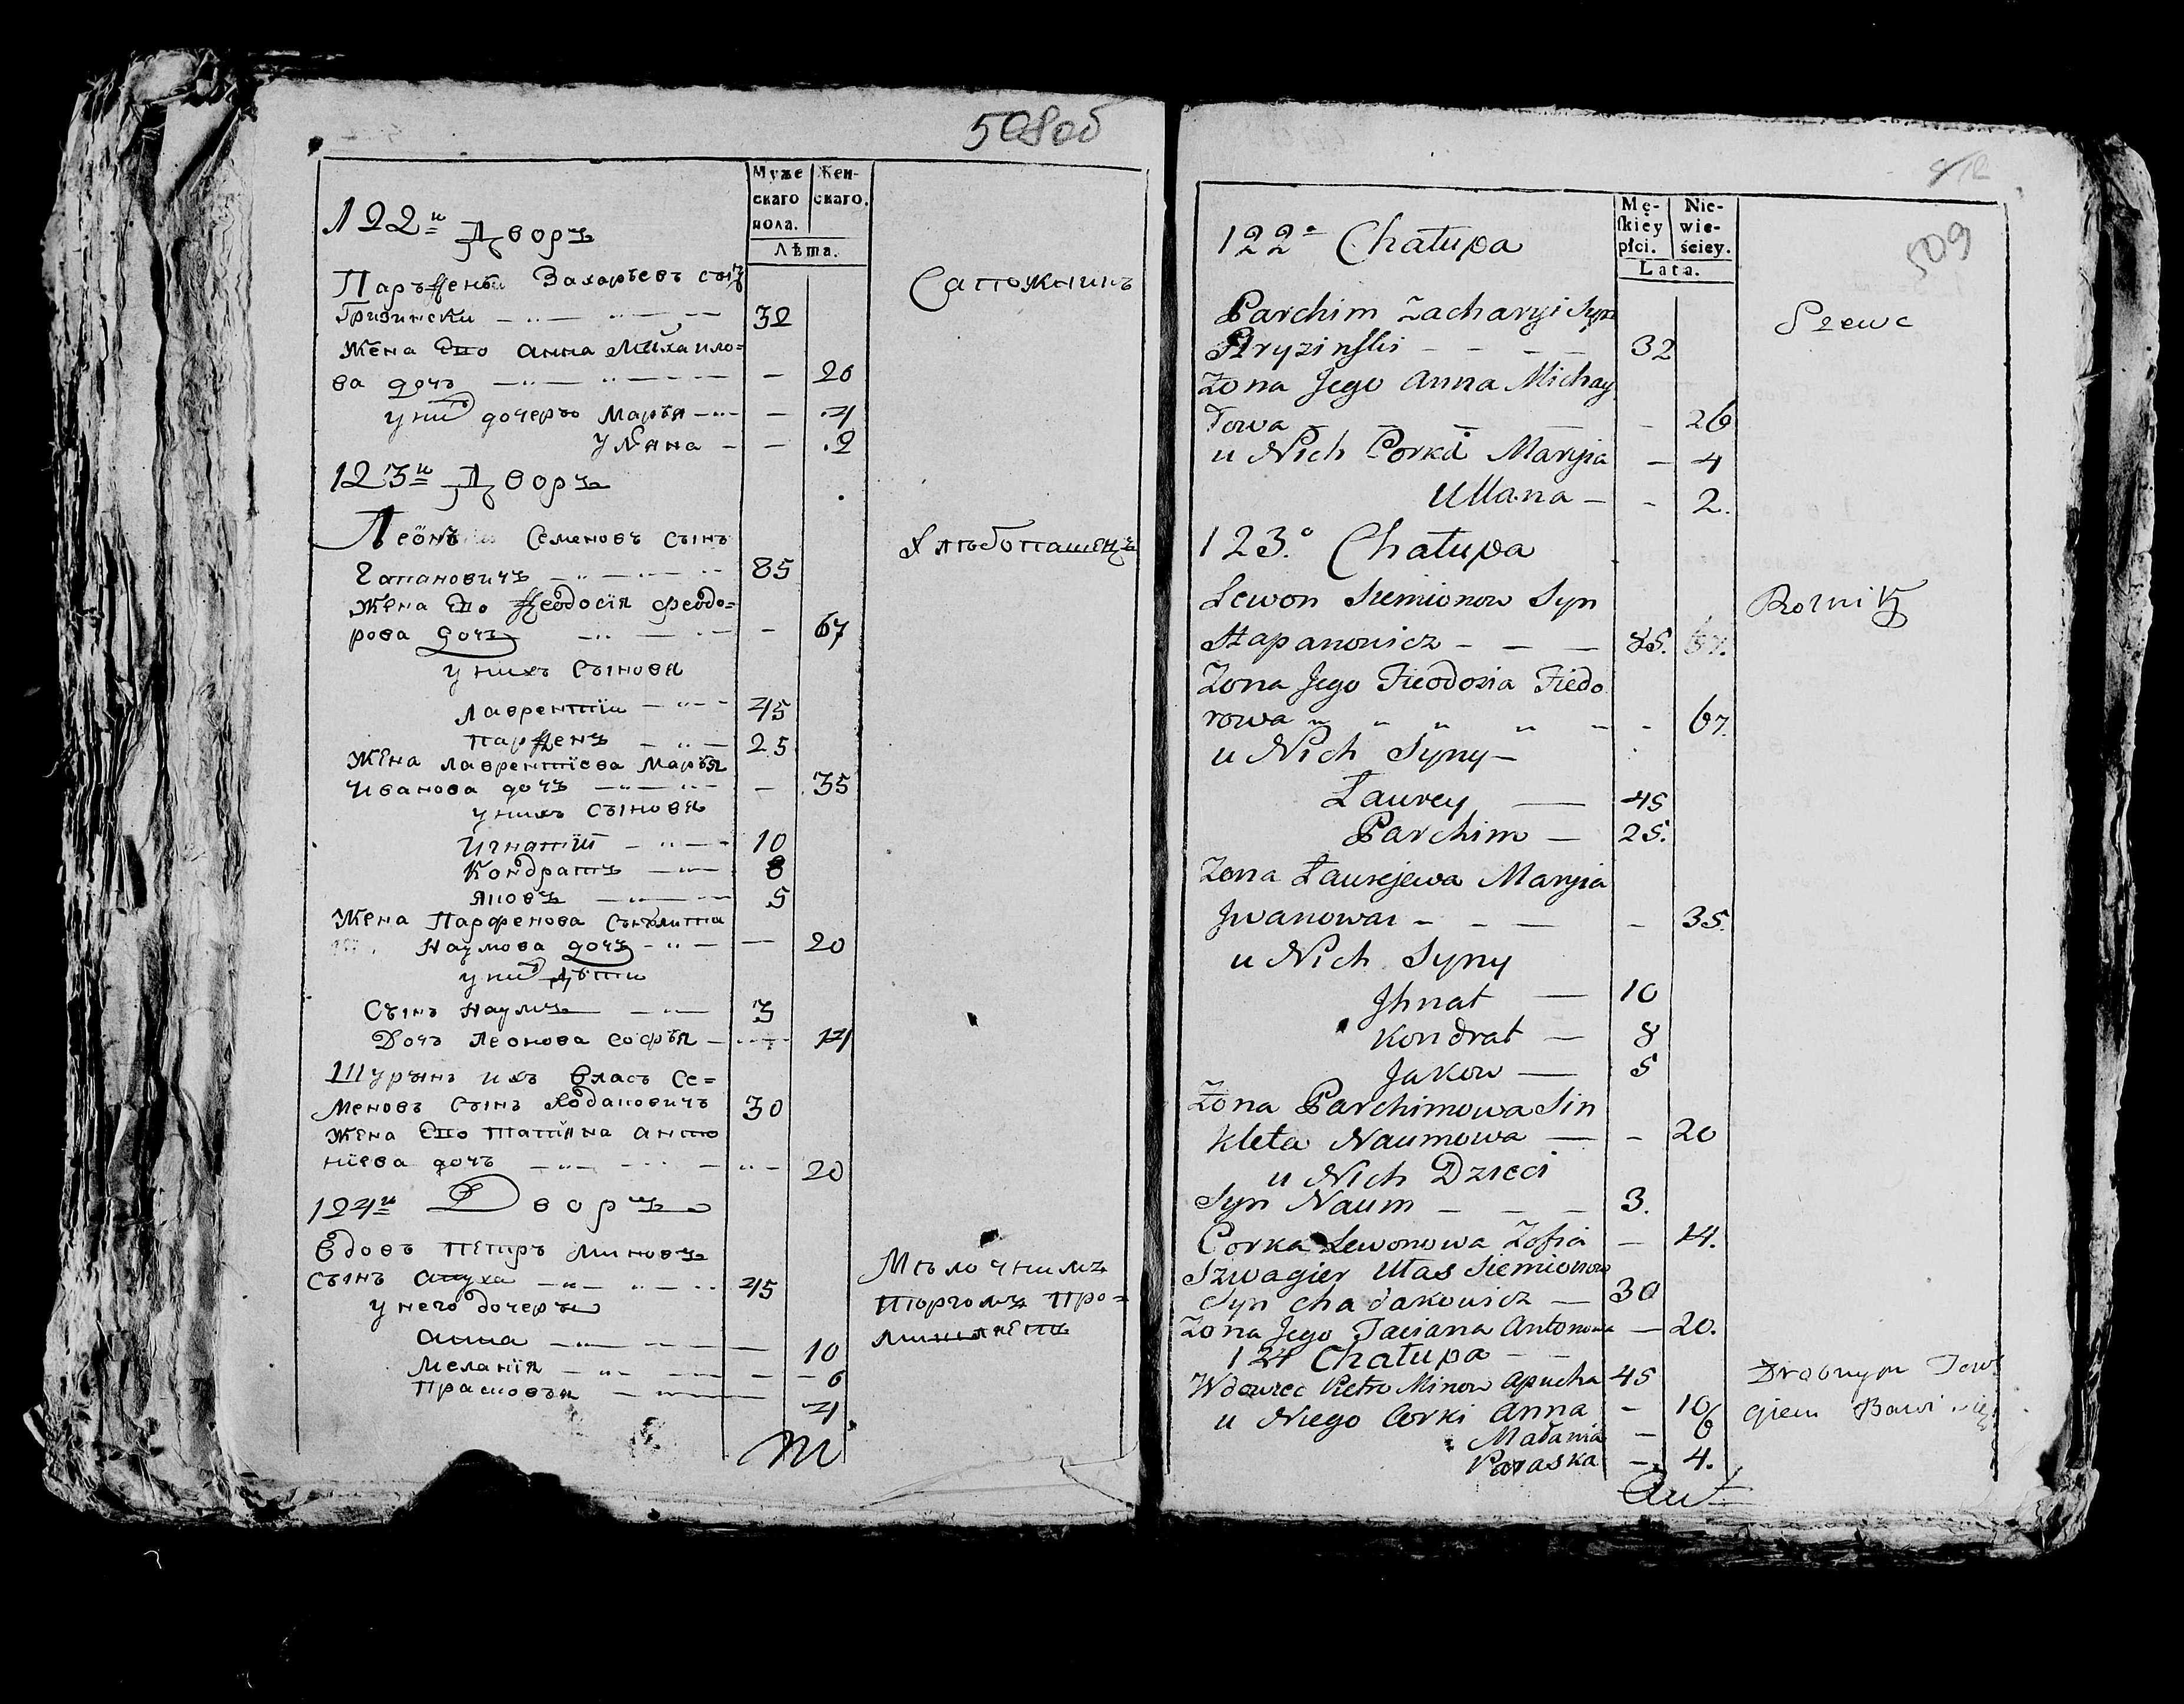 508об
Муже
скаго
пола.
Жен-
скаго.
Лѣта.
122й Дворъ
Парѳенъ Захарьевъ сынъ
Сапожникъ
32
Жена Его Анна Михайло=
ва дочъ 26
у них дочеръ Марья 4
Уляна 2
123й Дворъ
Леонъ Семеновъ сынъ
Хлѣбопашецъ
85
Жена Его Ѳеодосія Феодо=
рова дочь 67
у нихъ сыновя
Лаврентій 45
Парѳенъ 25
Жена Лаврентіева Марья
Иванова дочъ 35
у нихъ сыновя
Игнатій 10
Кондратъ 8
Яковъ 5
Жена Парфенова Сынклита
Наумова дочъ 20
у них Дѣти
Сынъ Наумъ 3
Дочъ Леонова Софья 14
Шурынъ ихъ Власъ Се=
меновъ сынъ Ходаковичъ 30
Жена Его Татіяна Анто
ніева дочъ 20
124й Дворъ
Вдовъ Петръ Миновъ
сынъ Апуха 45
Мѣлочнимъ
у него дочеръи
торгомъ про=
Анна 10
мишляетъ
Меланія 6
Прасковья 4
509
Mę-
skiey
płci.
Nie-
wie-
ściey.
Lata.
122º Chałupa
Parchim Zacharyi Syn
Szewc
Hryzinski 32
Żona Jego Anna Michay
łowa 26
u Nich Corka Maryia 4
Ullana 2.
123.º Chałupa
Lewon Siemionow Syn
Rolnik
Hapanowicz 85. 67.
Żona Jego Fieodosia Fiedo
rowa 67.
u Nich Syny
Łaurey 45
Parchim 25.
Żona Łaurejewa Maryia
Jwanowa 35.
u Nich Syny
Jhnat 10
Kondrat 8
Jakow 5
Żona Parchimowa Sin
kleta Naumowa 20
u Nich Dzieci
Syn Naum 3.
Corka Lewonowa Zofia 14.
Szwagier Ułas Siemionow
Syn Chadakowicz 30
Żona Jego Taciana Antonowa 20.
124 Chałupa
Wdowiec Pietro Minow Apucha 45
Drobnym
u Niego Corki Anna 10
Bawi się
Małania 6
Paraska 4.